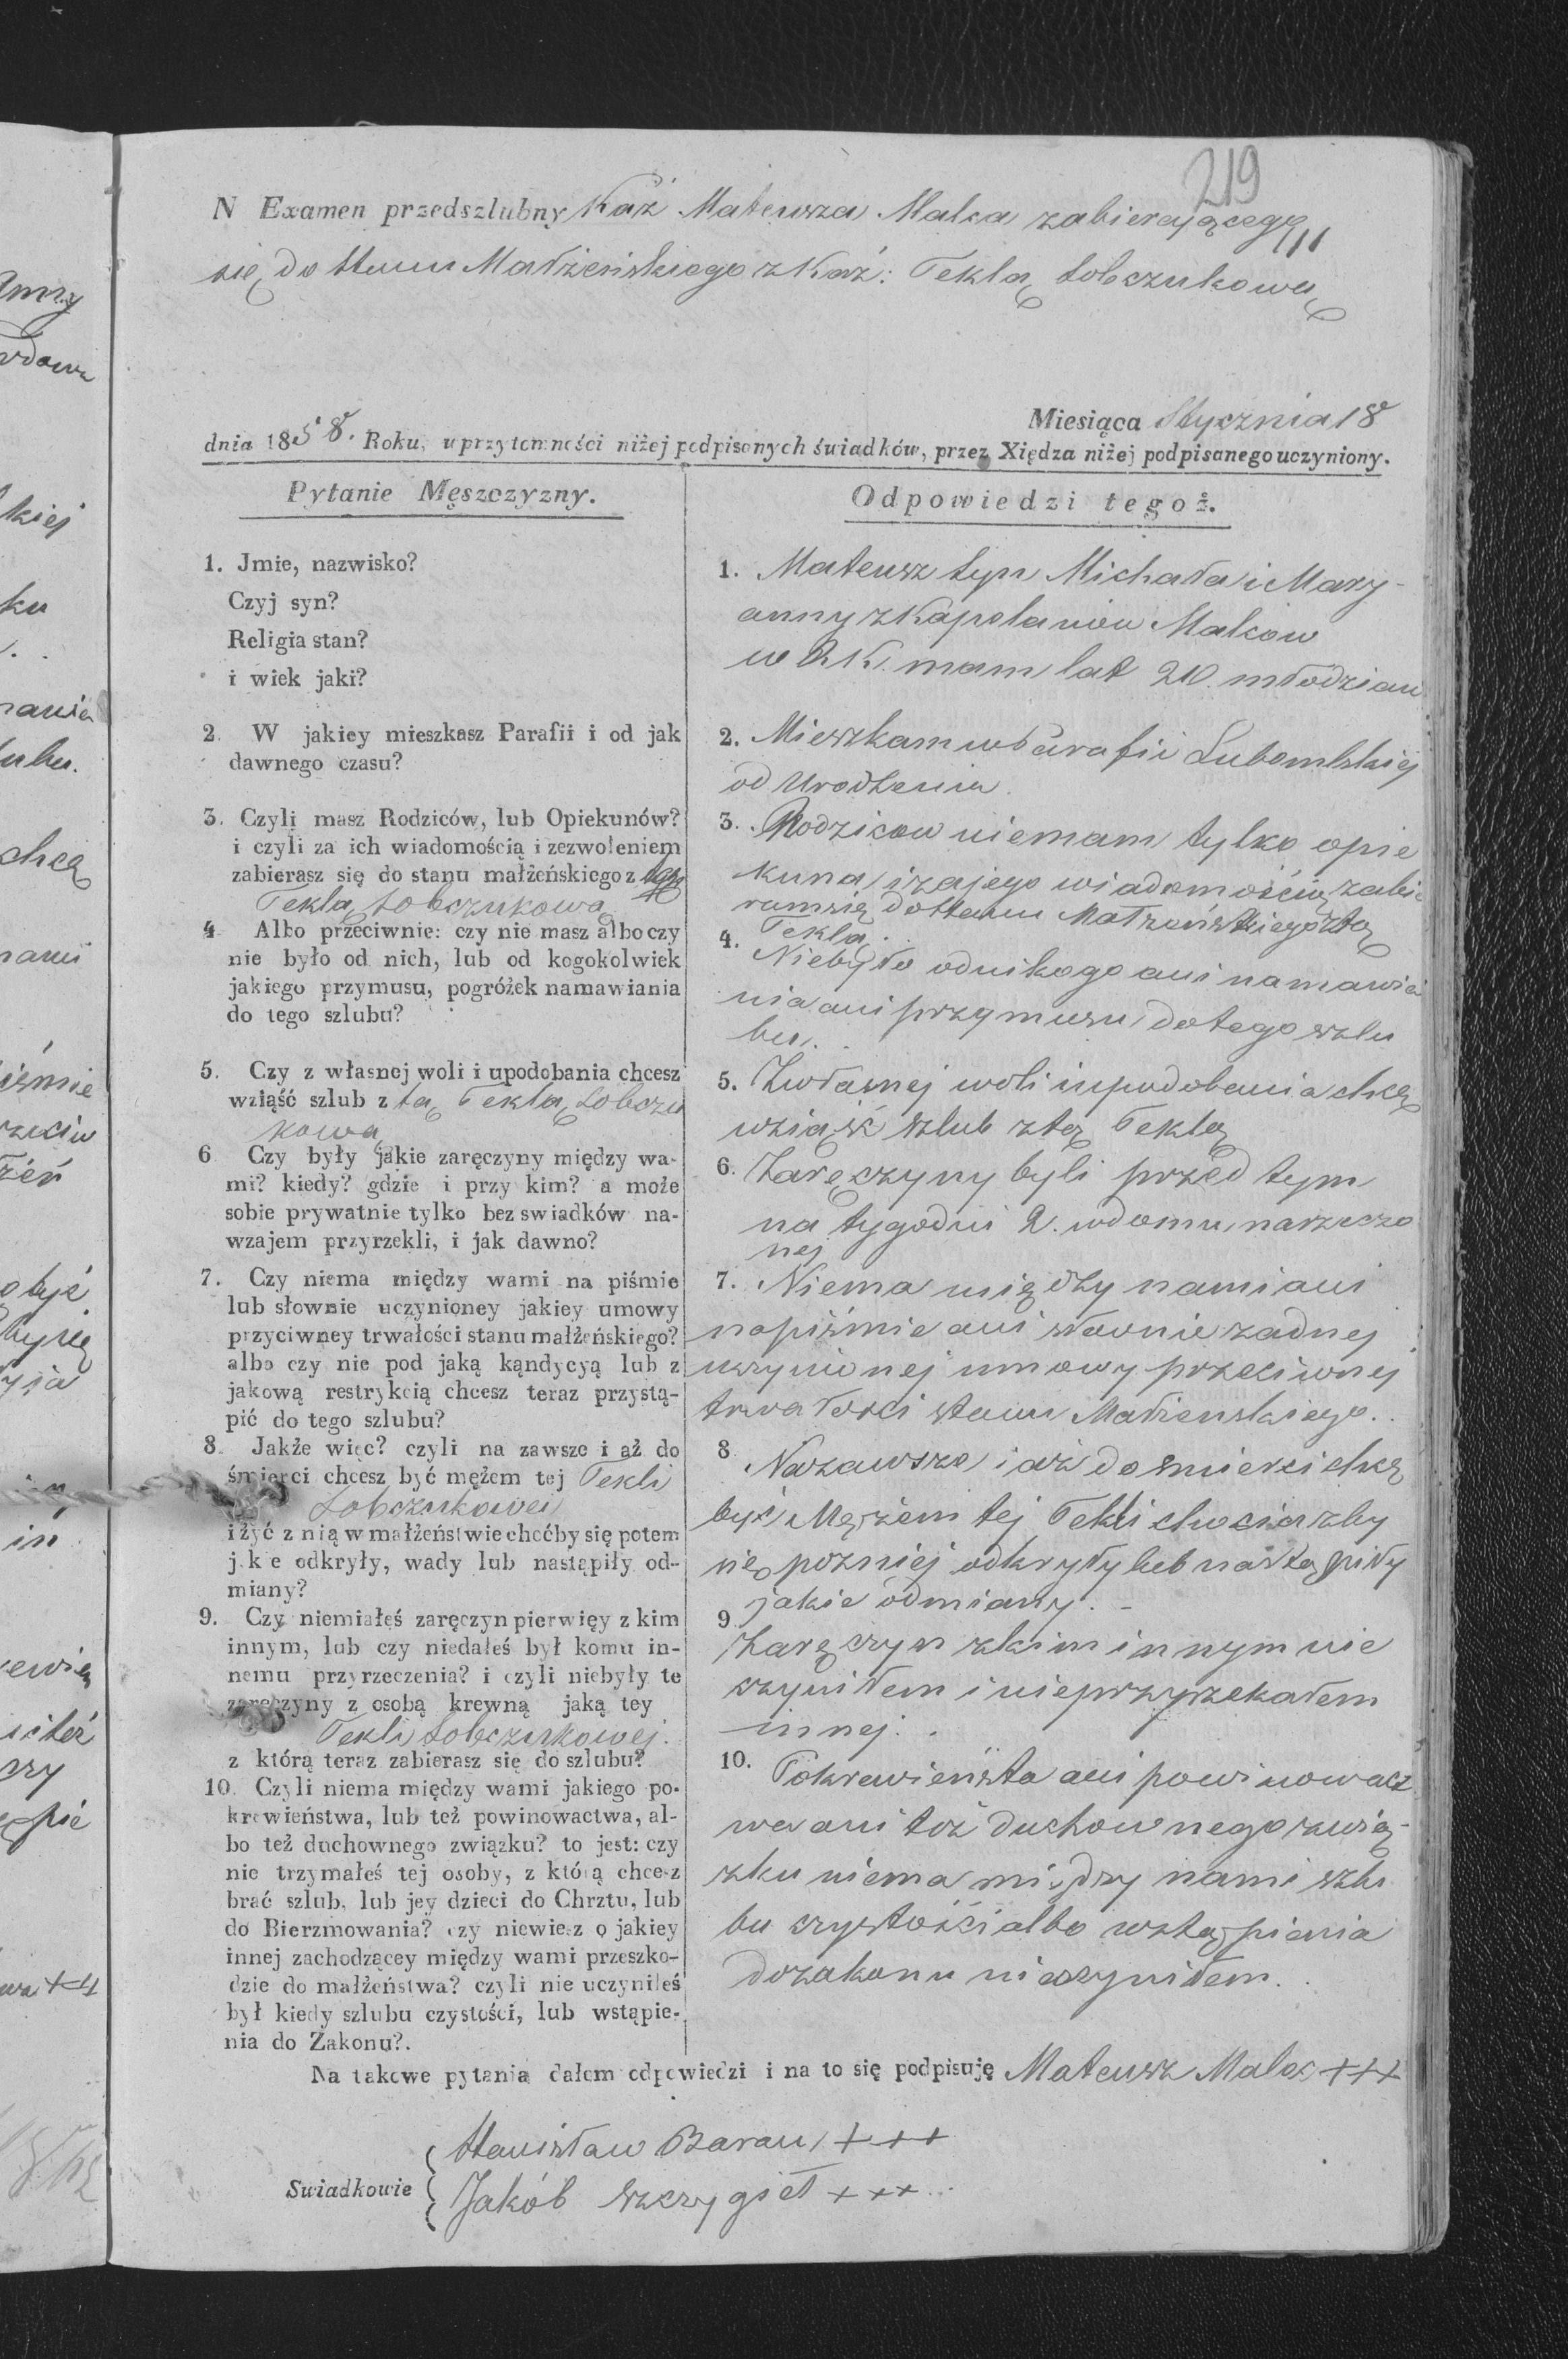 219
N Examen przedszlubny Kaź Mateusza Malca zabierającego
się do Stanu Małżeńskiego z Kaź: Teklą Łobczukową
Miesiąca Stycznia 18
dnia 1858. Roku, w przytomności niżej podpisanych świadków, przez Xiędza niżej podpisanego uczyniony.
Pytanie Męszczyzny.
1. Jmie, nazwisko?
Czyj syn?
Religia stan?
i wiek jaki?
2. W jakiey mieszkasz Parafii i od jak
dawnego czasu?
3. Czyli masz Rodziców, lub Opiekunów?
i czyli za ich wiadomością i zezwoleniem
zabierasz się do stanu małżeńskiego z tą
Teklą Łobczukową
4 Albo przeciwnie: czy nie masz albo czy
nie było od nich, lub od kogokolwiek
jakiego przymusu, pogróżek namawiania
do tego szlubu?
5. Czy z własnej woli i upodobania chcesz
wziąść szlub z tą Teklą Łobczu
kową
6 Czy były jakie zaręczyny między wa-
mi? kiedy? gdzie i przy kim? a może
sobie prywatnie tylko bez swiadków na-
wzajem przyrzekli, i jak dawno?
7. Czy niema między wami na piśmie
lub słownie uczynioney jakiey umowy
przyciwney trwałości stanu małżeńskiego?
albo czy nie pod jaką kąndycyą lub z
jakową restrykcią chcesz teraz przystą-
pić do tego szlubu?
8. Jakże więc? czyli na zawsze i aż do
śmierci chcesz być mężem tej Tekli
Łobczukowej
i żyć z nią w małżeństwie choćby się potem
jakie odkryły, wady lub nastąpiły od-
miany?
9. Czy niemiałeś zaręczyn pierwięy z kim
innym, lub czy niedałeś był komu in-
nemu przyrzeczenia? i czyli niebyły te
zaręczyny z osobą krewną jaką tey
Tekli Łobczukowej.
z którą teraz zabierasz się do szlubu?
10. Czyli niema między wami jakiego po-
krewieństwa, lub też powinowactwa, al-
bo też duchownego związku? to jest: czy
nie trzymałeś tej osoby, z którą chcesz
brać szlub, lub jey dzieci do Chrztu, lub
do Bierzmowania? czy niewiesz o jakiey
innej zachodzącey między wami przeszko-
dzie do małżeństwa? czyli nie uczyniłeś
był kiedy szlubu czystości, lub wstąpie-
nia do Zakonu?.
Odpowiedzi tegoż.
1. Mateusz syn Michała i Mary-
anny z Kapelanów Malców
w R K. mam lat 20. młodzian
2. Mieszkam w Parafii Lubomlskiej
od Urodzenia.
3. Rodzicow niemam tylko opie
kuna i za jego wiadomością zabie
ramsię do Stanu Małżeńskiego z tą
Teklą.
4. Niebyło od nikogo ani namawia
nia ani przymusu do tego szlu
bu.
5. Z własnej woli i upodobania chcę
wziąść szlub z tą Teklą
6. Zaręczyny byli przed tym
na tygodni 2. w domu narzeczo
nej
7. Niema między nami ani
napiśmie ani słownie żadnej
uczynionej umowy przeciwnej
trwałości stanu Małżenskiego..
8 Nazawsze i aż do smierci chcę
być Mężem tej Tekli chociażby
się pozniej odkryły lub nastąpiły
jakie odmiany. -
9. Zaręczyn z kim innym nie
czyniłem i nieprzyrzekałem
innej..
10. Pokrewieństa ani powinowact
wa ani też duchownego zwią-
zku niema między nami szlu
bu czystości albo wstąpienia
do zakonu nieczyniłem..
Na takowe pytania dałem odpowiedzi i na to się podpisuję Mateusz Malec +++
Swiadkowie
Stanisław Baran +++
Jakób Szczygieł +++...